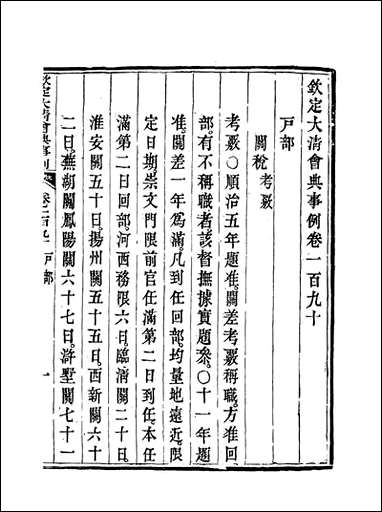 欽定大清會典事例卷一百九十
戶部
關稅考覈
考覈〇順治五年題准。關差考覈稱職。方准回
部。有不稱職者。該督撫據實題參。〇十一年題
准。關差一年為滿。凡到任回部。均量地遠近。限
定日期。崇文門限前官任滿第二日到任。本任
滿第二日回部。河西務限六日。臨淸關二十日。
淮安關五十日。揚州關五十五日。西新關六十
二日。蕪湖關鳳陽關六十七日。滸墅關七十一
欽定大清會典事例 卷一百九十 戶部 一